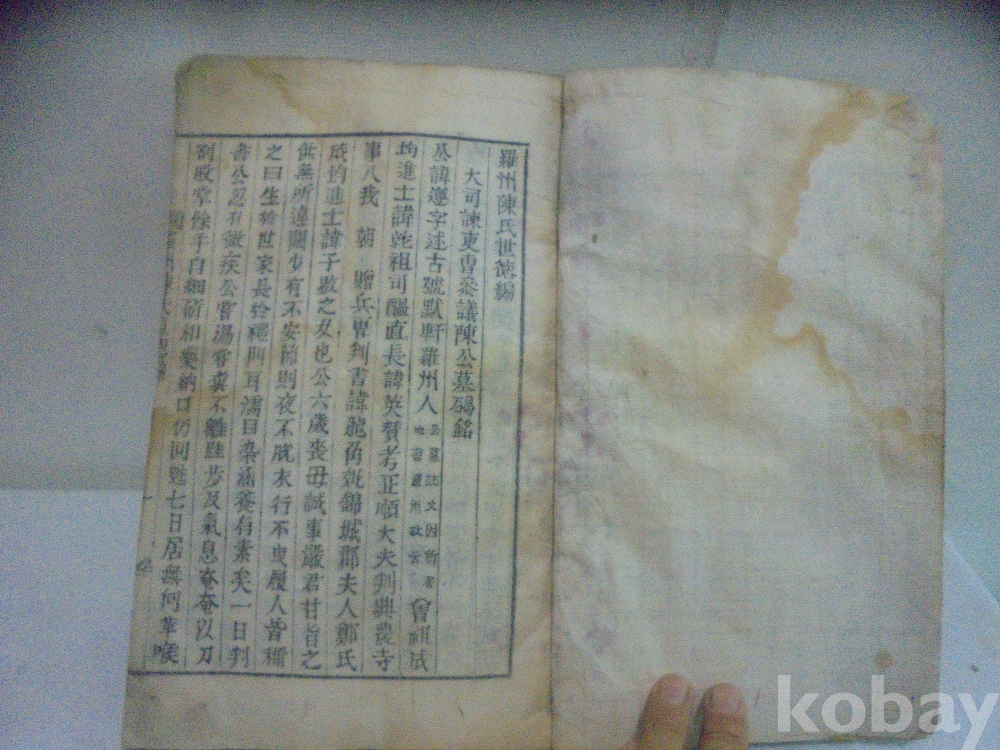 羅州陳氏世德編
大司諫吏曹參議陳公墓碣銘
公諱遵字述古號默軒羅州人 公墓誌文因所居 地書羅州故云 曾祖成
均進士諱乾祖司醞直長諱英賛考正順大夫判典農寺
事入我 朝 贈兵曹判書諱龍角妣錦城郡夫人鄭氏
成均進士諱子敷之女也公六歲喪母誠事嚴君甘旨之
供無所違闕少有不安節則夜不脫衣行不曳履人皆稱
之曰生於世家長於禮門耳濡目染涵養有素矣一日判
書公忽有微疾公嘗湯嘗糞不離跬步及氣息奄奄以刀
割股掌候手自細斫和藥納口仍回甦七日居無何卒喉
kobay